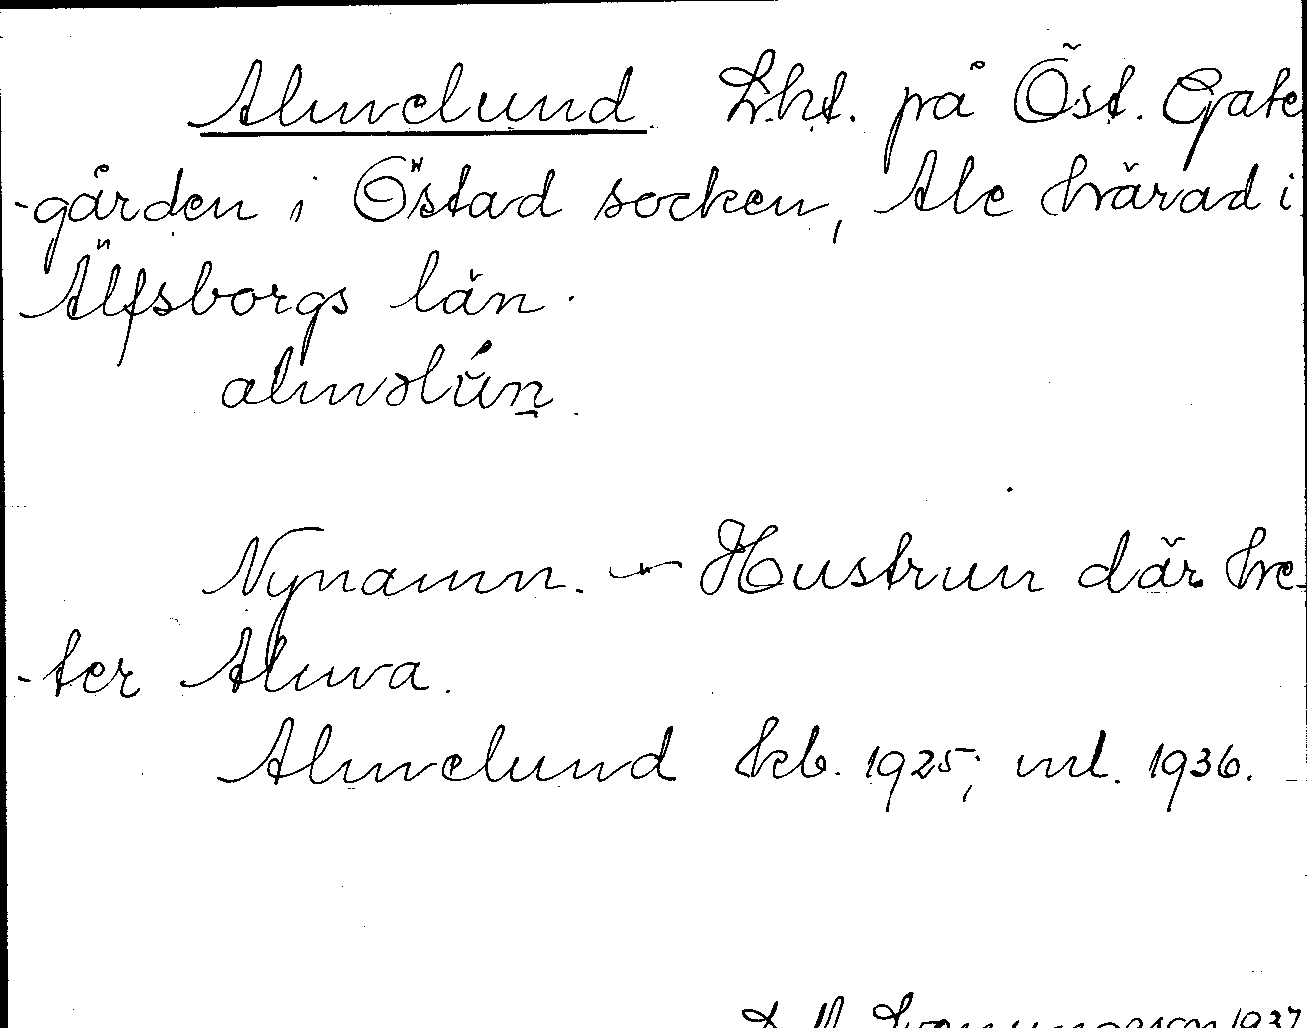 Almelund. Lht. på Öst. Gate
-gården i Östad socken, Ale härad i
Älfsborgs län.
alməlún̠.
Nynamn. — Hustrun där he-
-ter Alma.
Almelund kb. 1925; ml. 1936.
1937